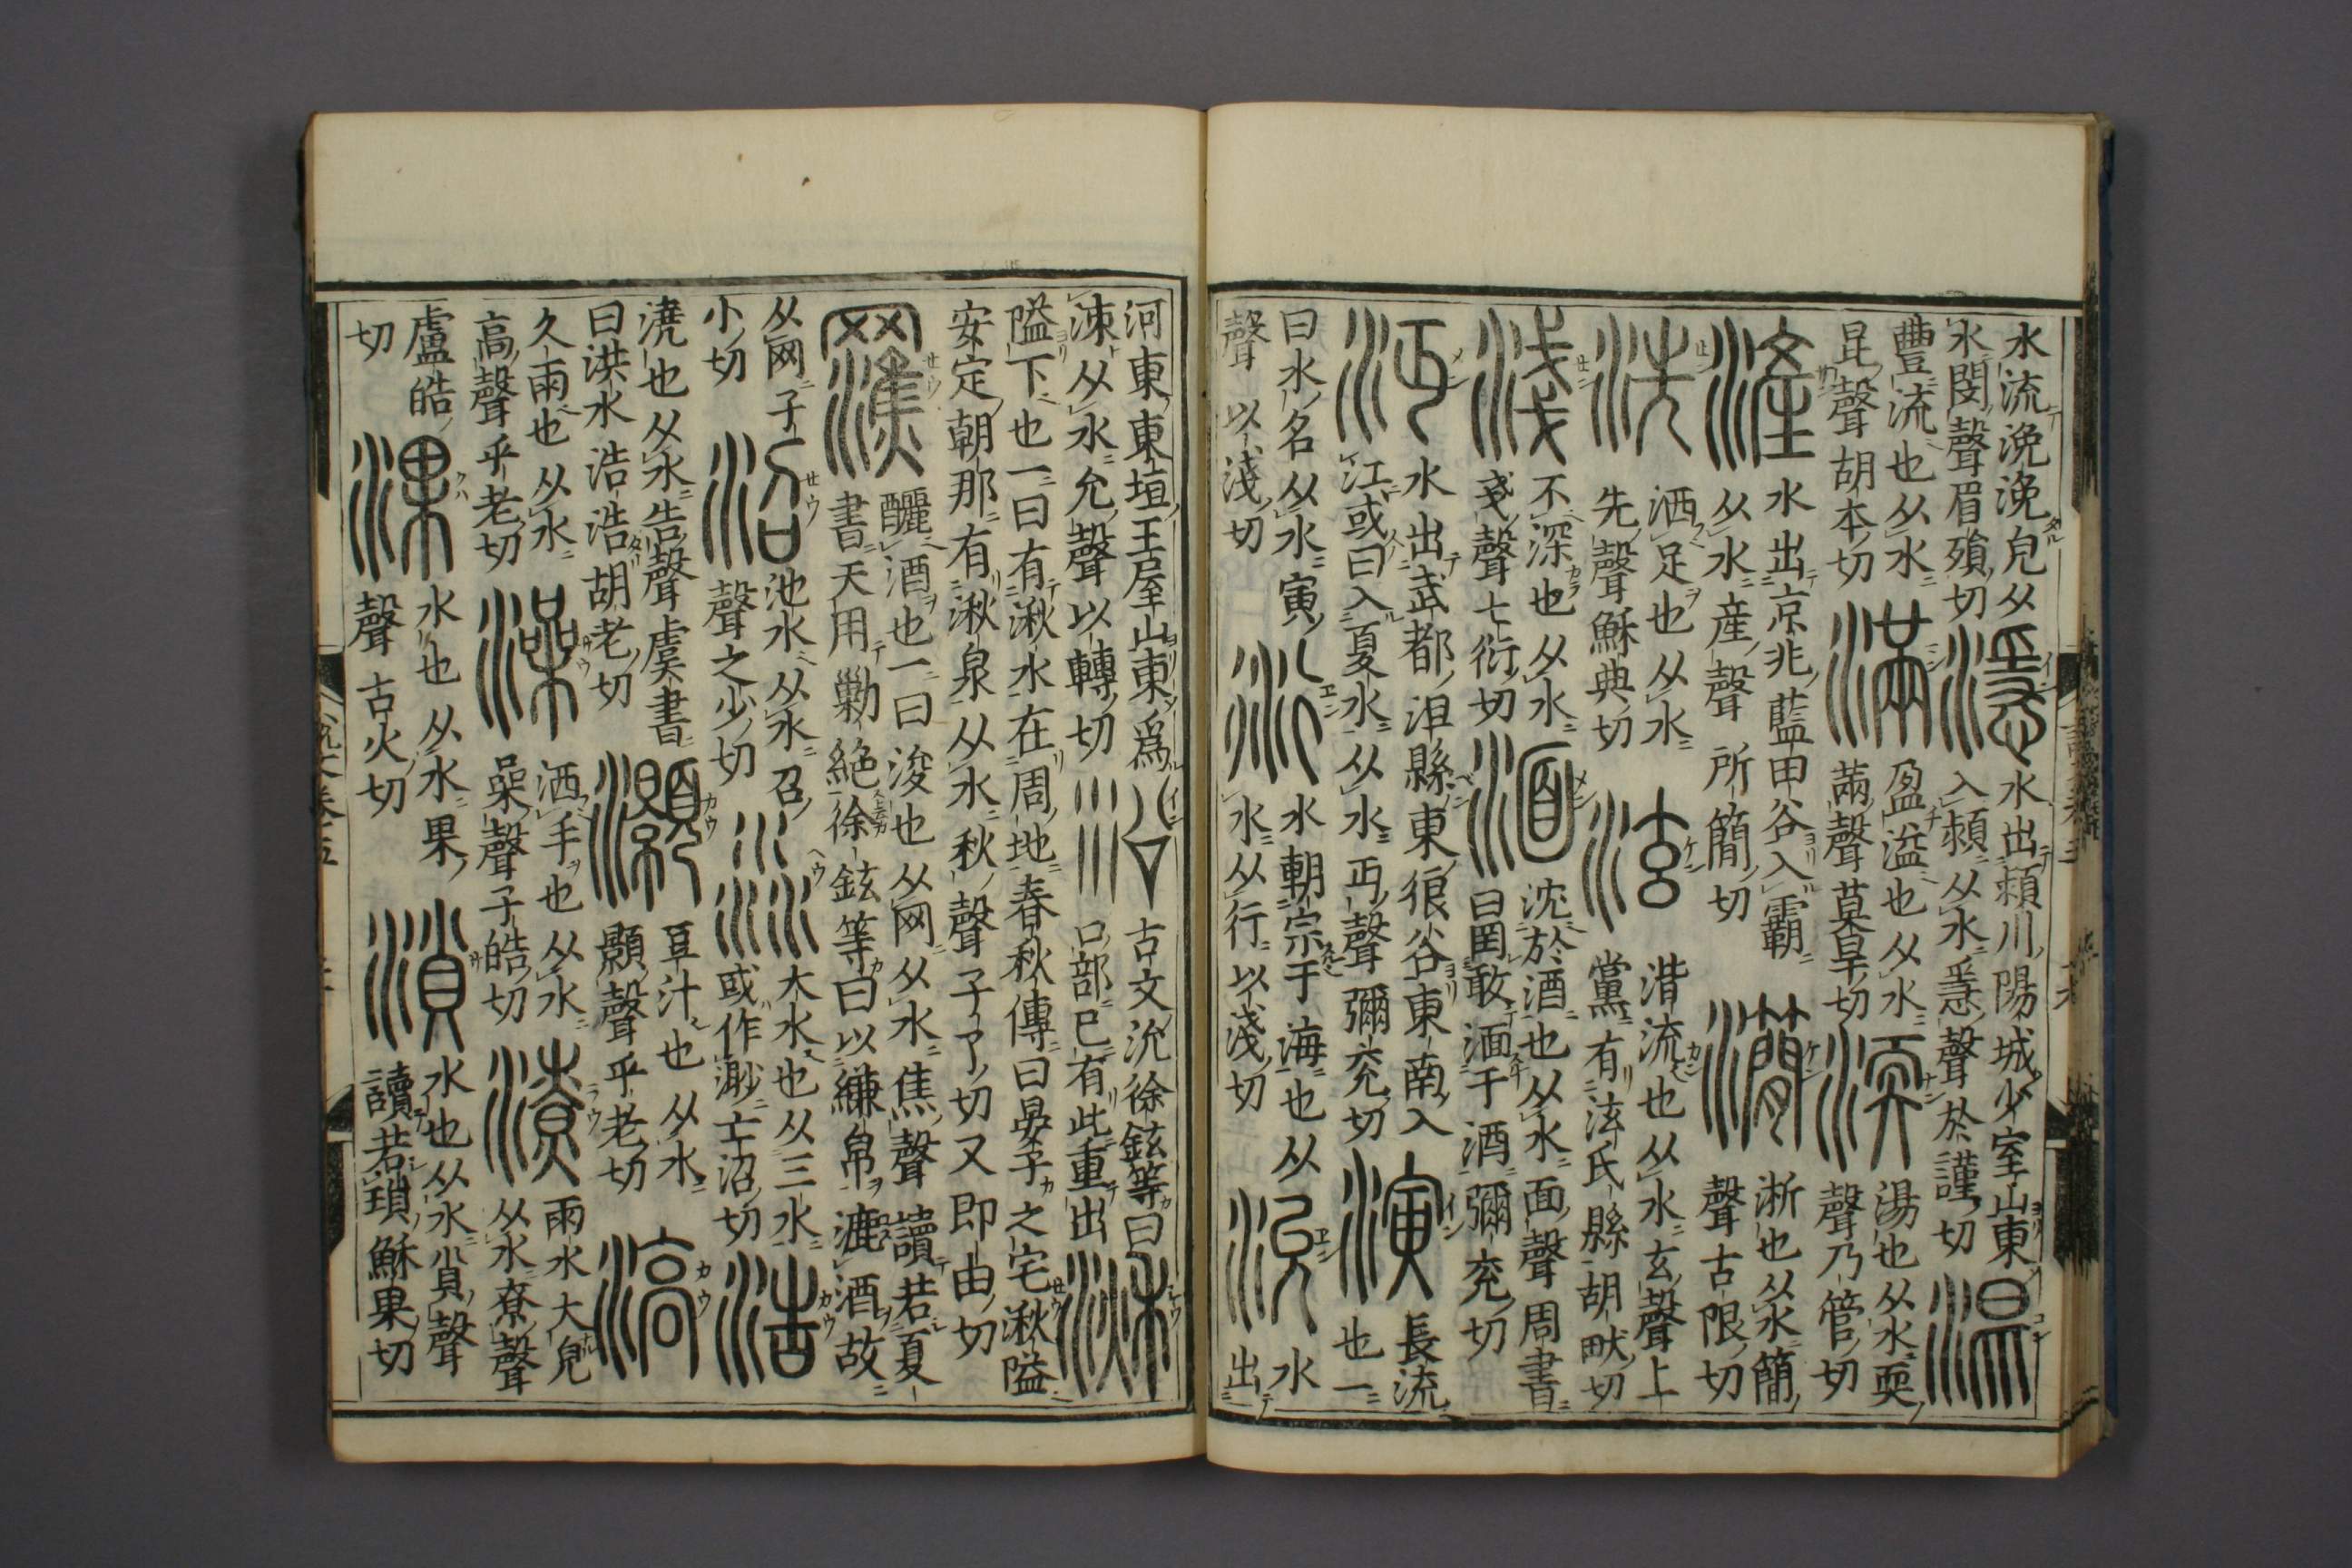 水流浼浼皃从
水閔聲眉殞切
濦
水出潁川陽城少室山東
入潁从水㥯聲於謹切
混
豐流也从水
昆聲胡本切
滿
盈溢也从水
㒼聲莫旱切
渜
湯也从水耎
聲乃管切
滻
水出京兆藍田谷入霸
从水產聲所簡切
𤄒
淅也从水簡
聲古限切
洗
洒足也从水
先聲穌典切
泫
湝流也从水玄聲上
黨有泫氏縣胡畎切
淺
不深也从水
戔聲七衍切
湎
沈於酒也从水面聲周書
曰罔敢湎于酒彌兗切
沔
水出武都沮縣東狼谷東南入
江或曰入夏水从水丏聲彌兗切
演
長流
也一
曰水名从水寅
聲以淺切
衍
水朝宗于海也从
水从行以淺切
沇
水
出
河東東垣王屋山東爲
涷从水允聲以轉切
㕣
古文沇徐鉉等曰
口部已有此重出
湫
隘下也一曰有湫水在周地春秋傳曰晏子之宅湫隘
安定朝那有湫泉从水秋聲子了切又即由切
釃酒也一曰浚也从网从水焦聲讀若夏
書天用勦絶徐鉉等曰以縑帛漉酒故
从网子
小切
沼
池水从水召
聲之少切
淼
大水也从三水
或作渺亡沼切
浩
澆也从水告聲虞書
曰洪水浩浩胡老切
灝
豆汁也从水
顥聲乎老切
滈
久雨也从水
高聲乎老切
澡
洒手也从水
喿聲子皓切
潦
雨水大皃
从水尞聲
盧皓
切
淉
水也从水果
聲古火切
溑
水也从水𧴪聲
讀若瑣穌果切